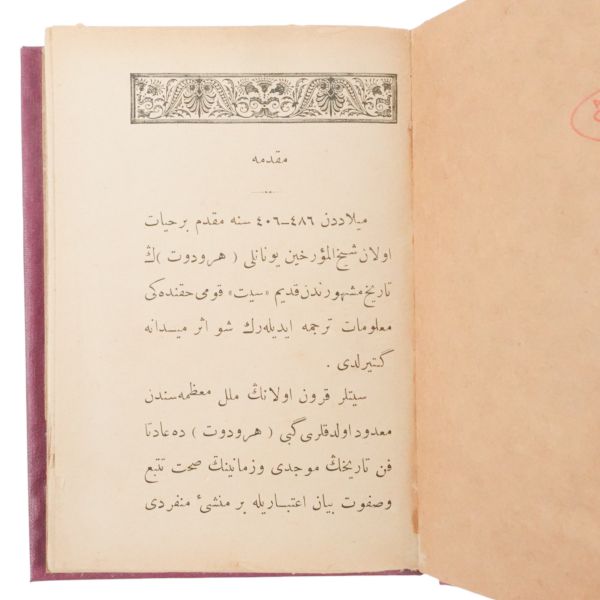 مقدمه
میلاددن ٤٨٦–٤٠٦ سنه مقدم برحیات
اولان شیخ المؤرخین یونانلی ( هرودوت ) ڭ
تاریخ مشهورندن قدیم «سیت» قومی حقنده‌کی
معلومات ترجمه ایدیله‌رك شو اثر میدانه
گتیرلدی .
سیتلر قرون اولانڭ ملل معظمه‌سندن
معدود اولدقلری گبی ( هرودوت ) ده عادتا
فن تاریخڭ موجدی وزمانینڭ صحت تتبع
وصفوت بیان اعتباریله بر منشیٔ منفردی